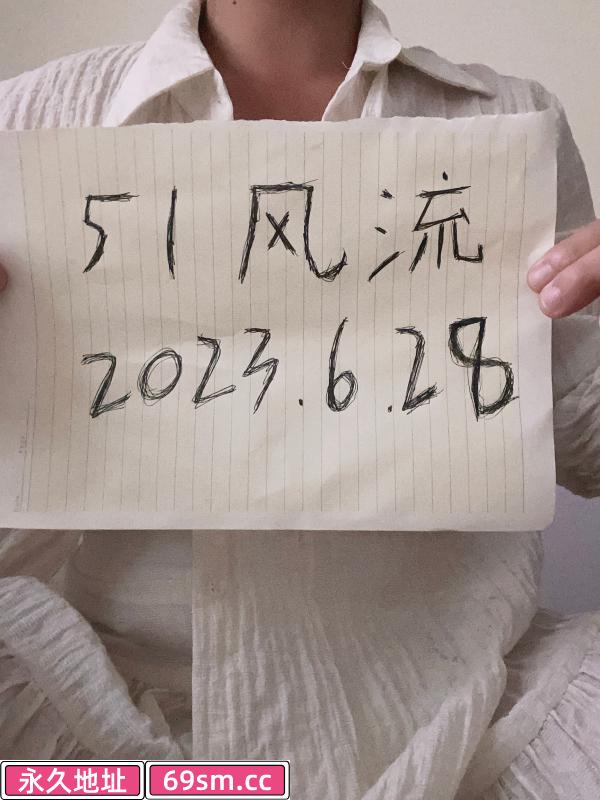 51风流
2023.6.28
永久地址 69sm.cc